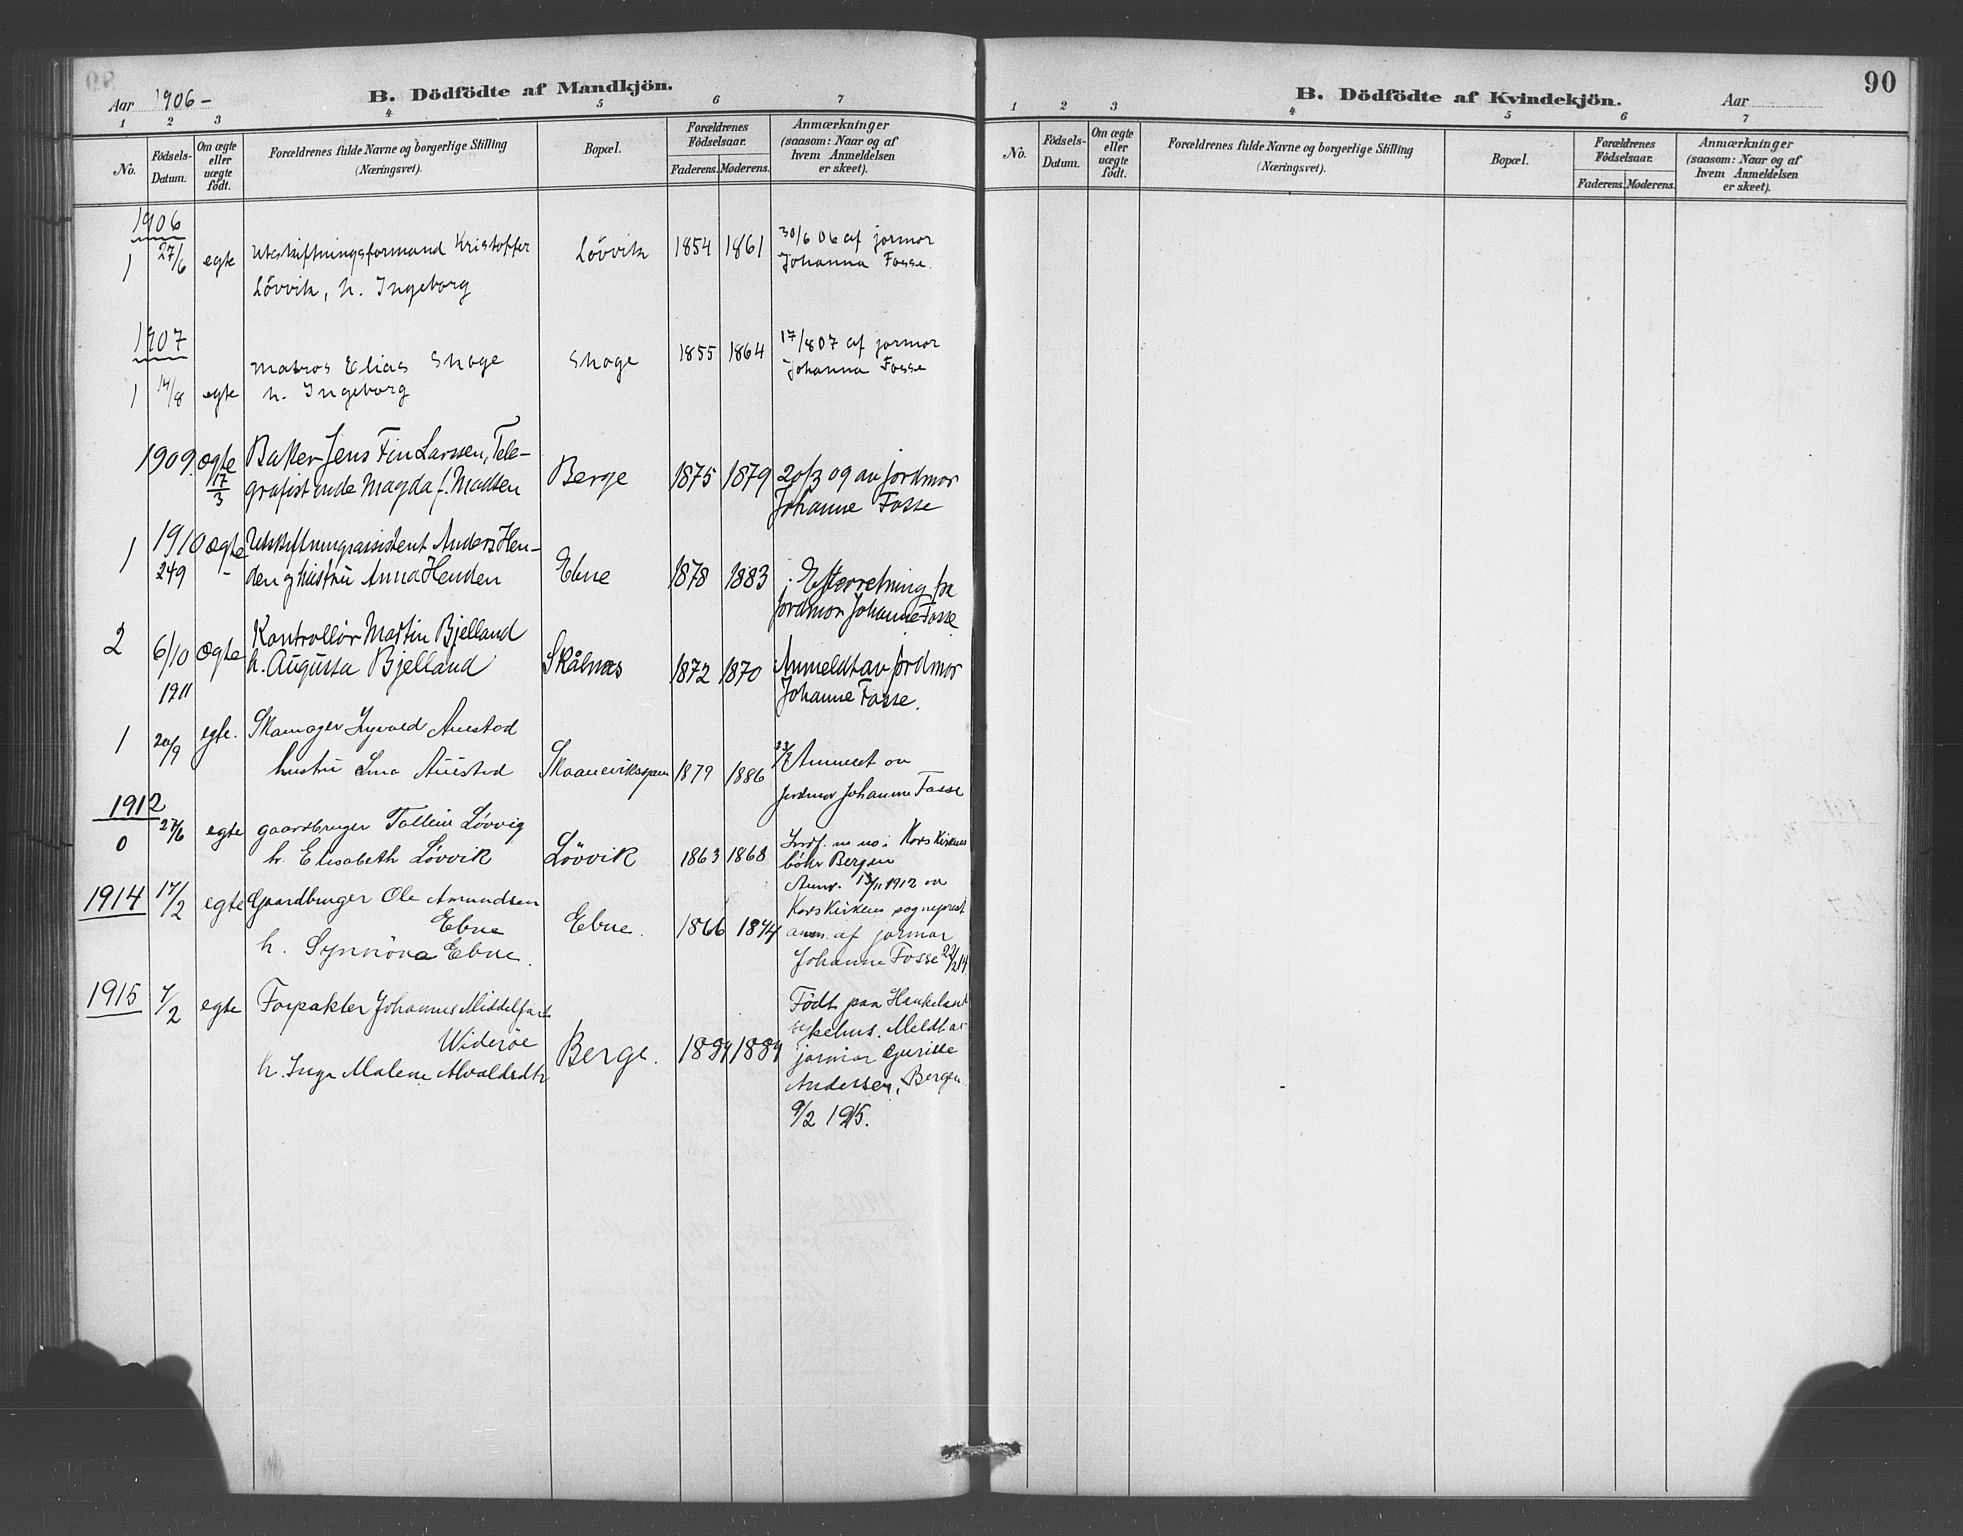 Aar 1906 –
B. Dödfödte af Mandkjön.
1 2 3 4 5 6 7
No.
Födsels-
Datum.
Om ægte
eller
uægte
födt.
Forældrenes fulde Navne og borgerlige Stilling
(Næringsvei).
Bopæl.
Forældrenes
Födselsaar.
Faderens. Moderens.
Anmærkninger
(saasom: Naar og af
hvem Anmeldelsen
er skeet).
1906
1 27/6 egte Utskiftningsformand Kristoffer
Lövvik, h. Ingeborg
Lövvik 1854 1861
30/6 06 af jormor
Johanna Fosse.
1907
1 14/8 egte Matros Elias Skoge
h. Ingeborg
Skoge 1855 1864
17/8 07 af jormor
Johanna Fosse
1909. ægte
17/3
Baker Jens Fin Larssen, Tele-
grafist Magda f. Madsen
Berge 1875 1879
20/3 09 av jordmor
Johanne Fosse
1 1910 ægte
24/9 –
Utskiftningsassistent Anders Hen-
den og hustru Anna Henden
Ebne 1878 1883
Efterretning fra
jordmor Johanne Fosse
2 6/10 ægte Kontrollör Martin Bjelland
h. Augusta Bjelland
Skålnæs 1872 1870
Anmeldt av jordmor
Johanne Fosse.
1911
1 20/9 egte. Skomager Auestad
hustru Auestad
1879 1886
av
jordmor Johanne Fosse
1912
0 27/6 egte gaardbruger Tollein Lövvig
h. Elisabeth Lövvik
Lövvik 1863 1868
Korskirkens
Bergen
13/11 1912 av
Korskirkens sogneprest
1914 17/2 egte Gaardbruger Ole Amundsen
Ebne
h. Synnöva Ebne.
Ebne. 1866 1874
anm. af jormor
Johanne Fosse 22/2 14
1915 7/2 egte Forpakter Johannes Middelfart
Wideröe
h. Inga Malene Alvaldsdtr
Berge.
Födt paa Haukeland
sykehus. Meldt av
jormor
Andersen, Bergen
9/2 1915.
90
B. Dödfödte af Kvindekjön.
Aar
1 2 3 4 5 6 7
No.
Födsels-
Datum.
Om ægte
eller
uægte
födt.
Forældrenes fulde Navne og borgerlige Stilling
(Næringsvei).
Bopæl.
Forældrenes
Födselsaar.
Faderens. Moderens.
Anmærkninger
(saasom: Naar og af
hvem Anmeldelsen
er skeet).